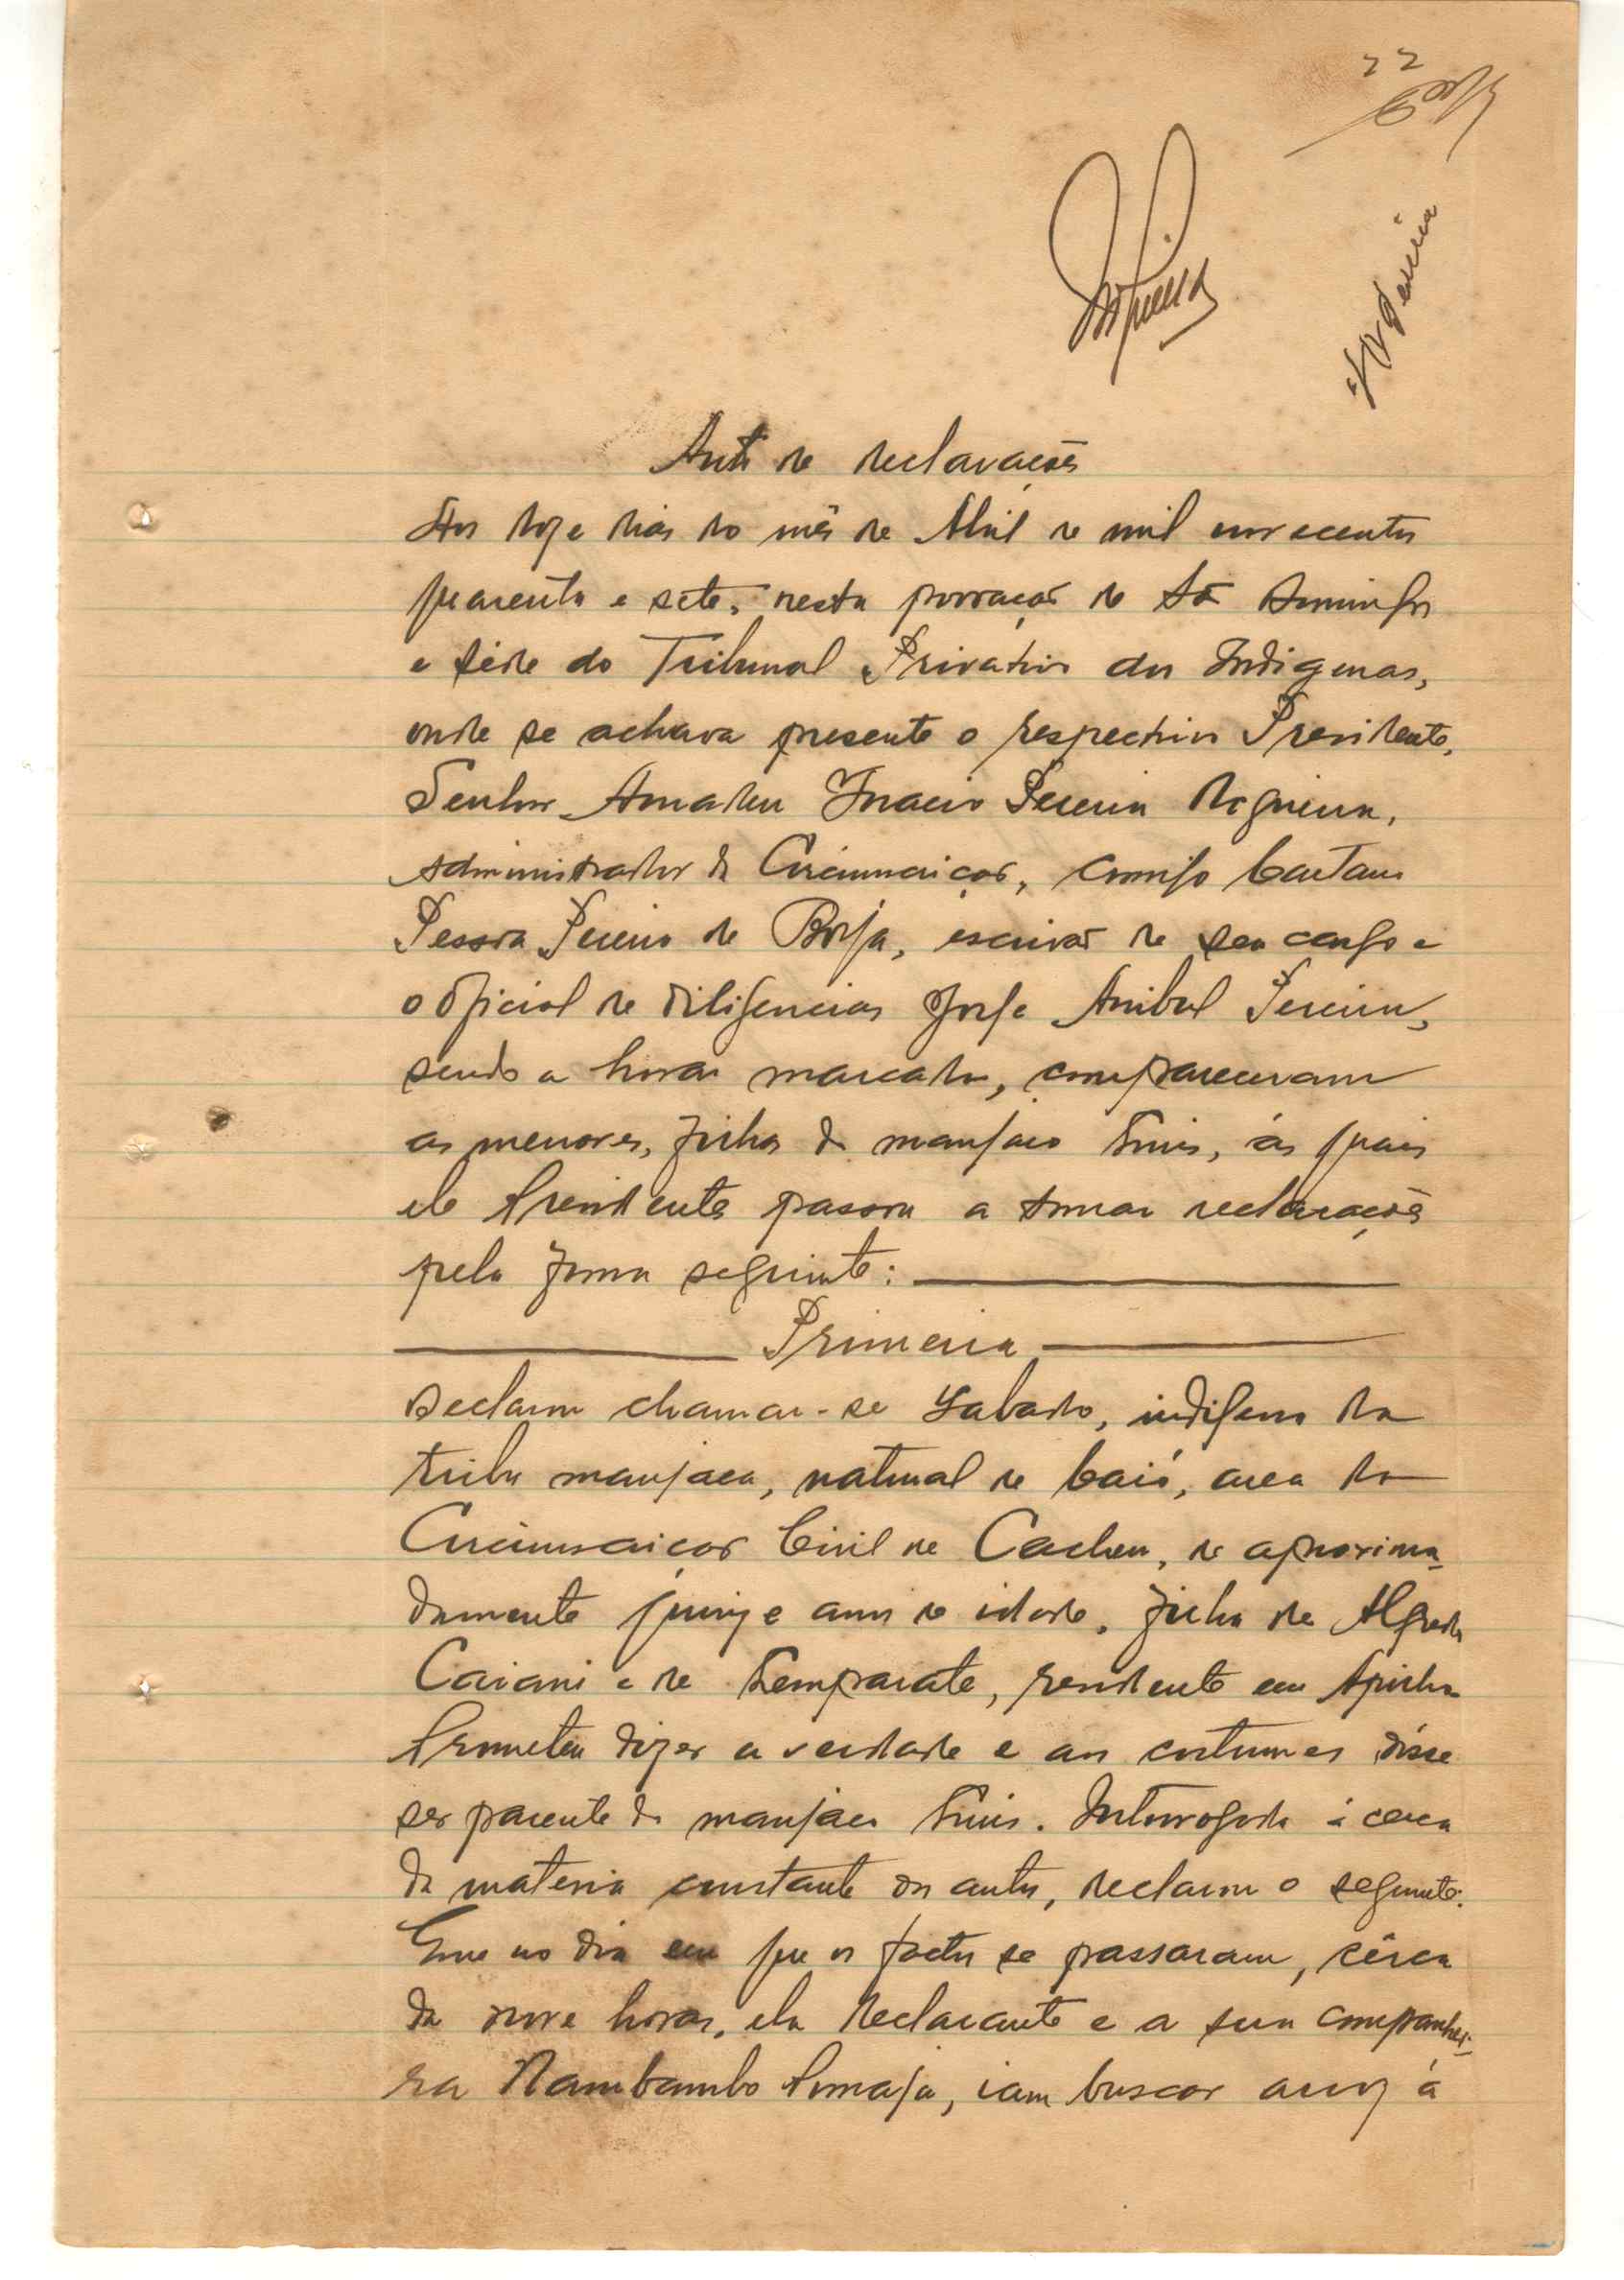 22
Auto de declarações
Aos doze dias do mês de Abril de mil novecentos
quarenta e sete, nesta povoação de São Domingos
e séde do Tribunal Privativo dos Indigenas,
onde se achava presente o respectivo Presidente,
Senhor Amadeu Inacio Pereira Nogueira,
administrador da Circunscrição, comigo Caetano
Pessoa Pereira de Borja, escrivão de seu cargo e
o oficial de diligencias Jorge Anibal Pereira,
sendo a hora marcada, compareceram
as menores, filhas do manjaco Luis, ás quais
ele Presidente passou a tomar declarações
pela forma seguinte:
Primeira
Declarou chamar-se Sabado, indigena da
tribu manjaca, natural de Caió, area da
Circunscrição Civil de Cacheu, de aproxima-
damente quinze anos de idade, filha de Alfredo
Caiani e de, residente em
Prometeu dizer a verdade e aos costumes disse
ser parente do manjaco Luis. Interrogada á cerca
da materia constante dos autos, declarou o seguinte:
Que no dia em que os factos se passaram, cêrca
das nove horas, ela declarante e a sua companhei-
ra Nambambo, iam buscar arroz á